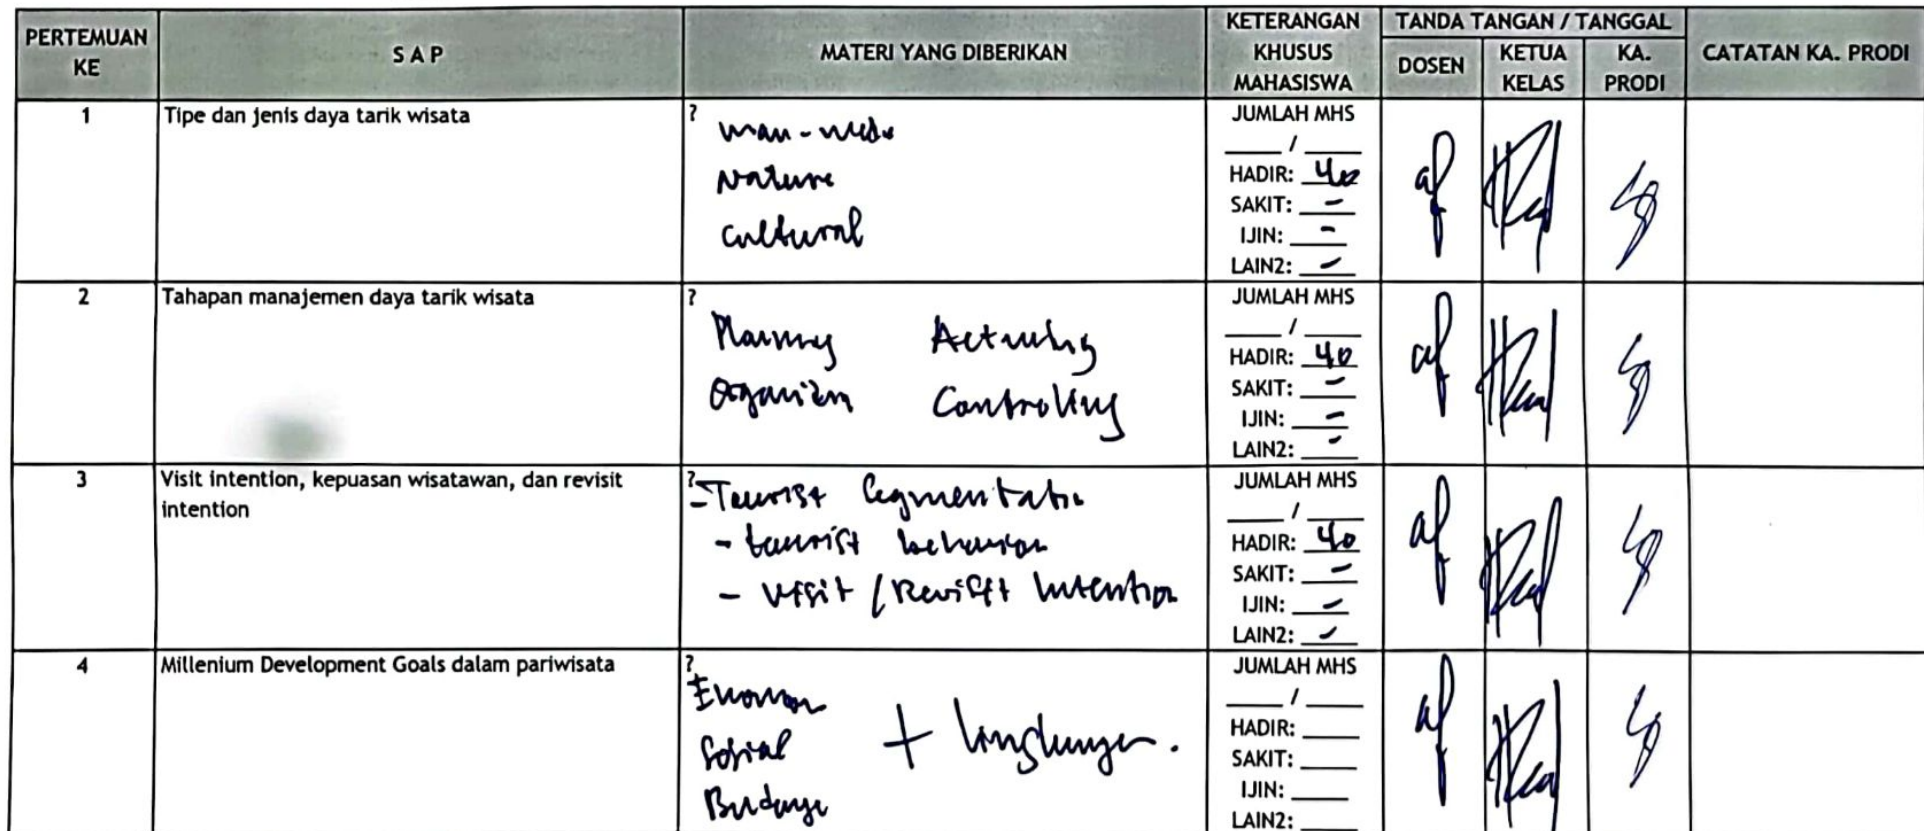 PERTEMUAN KE
SAP
MATERI YANG DIBERIKAN
KETERANGAN KHUSUS MAHASISWA
TANDA TANGAN / TANGGAL
DOSEN
KETUA KELAS
KA. PRODI
CATATAN KA. PRODI
1
Tipe dan jenis daya tarik wisata
?
man-made
Nature
Cultural
JUMLAH MHS
___ / ___
HADIR: 40
SAKIT: -
IJIN: -
LAIN2: -
2
Tahapan manajemen daya tarik wisata
?
Planning Actuating
Organizin Controling
JUMLAH MHS
___ / ___
HADIR: 40
SAKIT: -
IJIN: -
LAIN2: -
3
Visit intention, kepuasan wisatawan, dan revisit
intention
?
- Tourist Segmentatin
- tourist behavior
- Visit / Revisit Intention
JUMLAH MHS
___ / ___
HADIR: 40
SAKIT: -
IJIN: -
LAIN2: -
4
Millenium Development Goals dalam pariwisata
?
Ekonom
Sosial + lingkungan.
Budaya
JUMLAH MHS
___ / ___
HADIR: ___
SAKIT: ___
IJIN: ___
LAIN2: ___